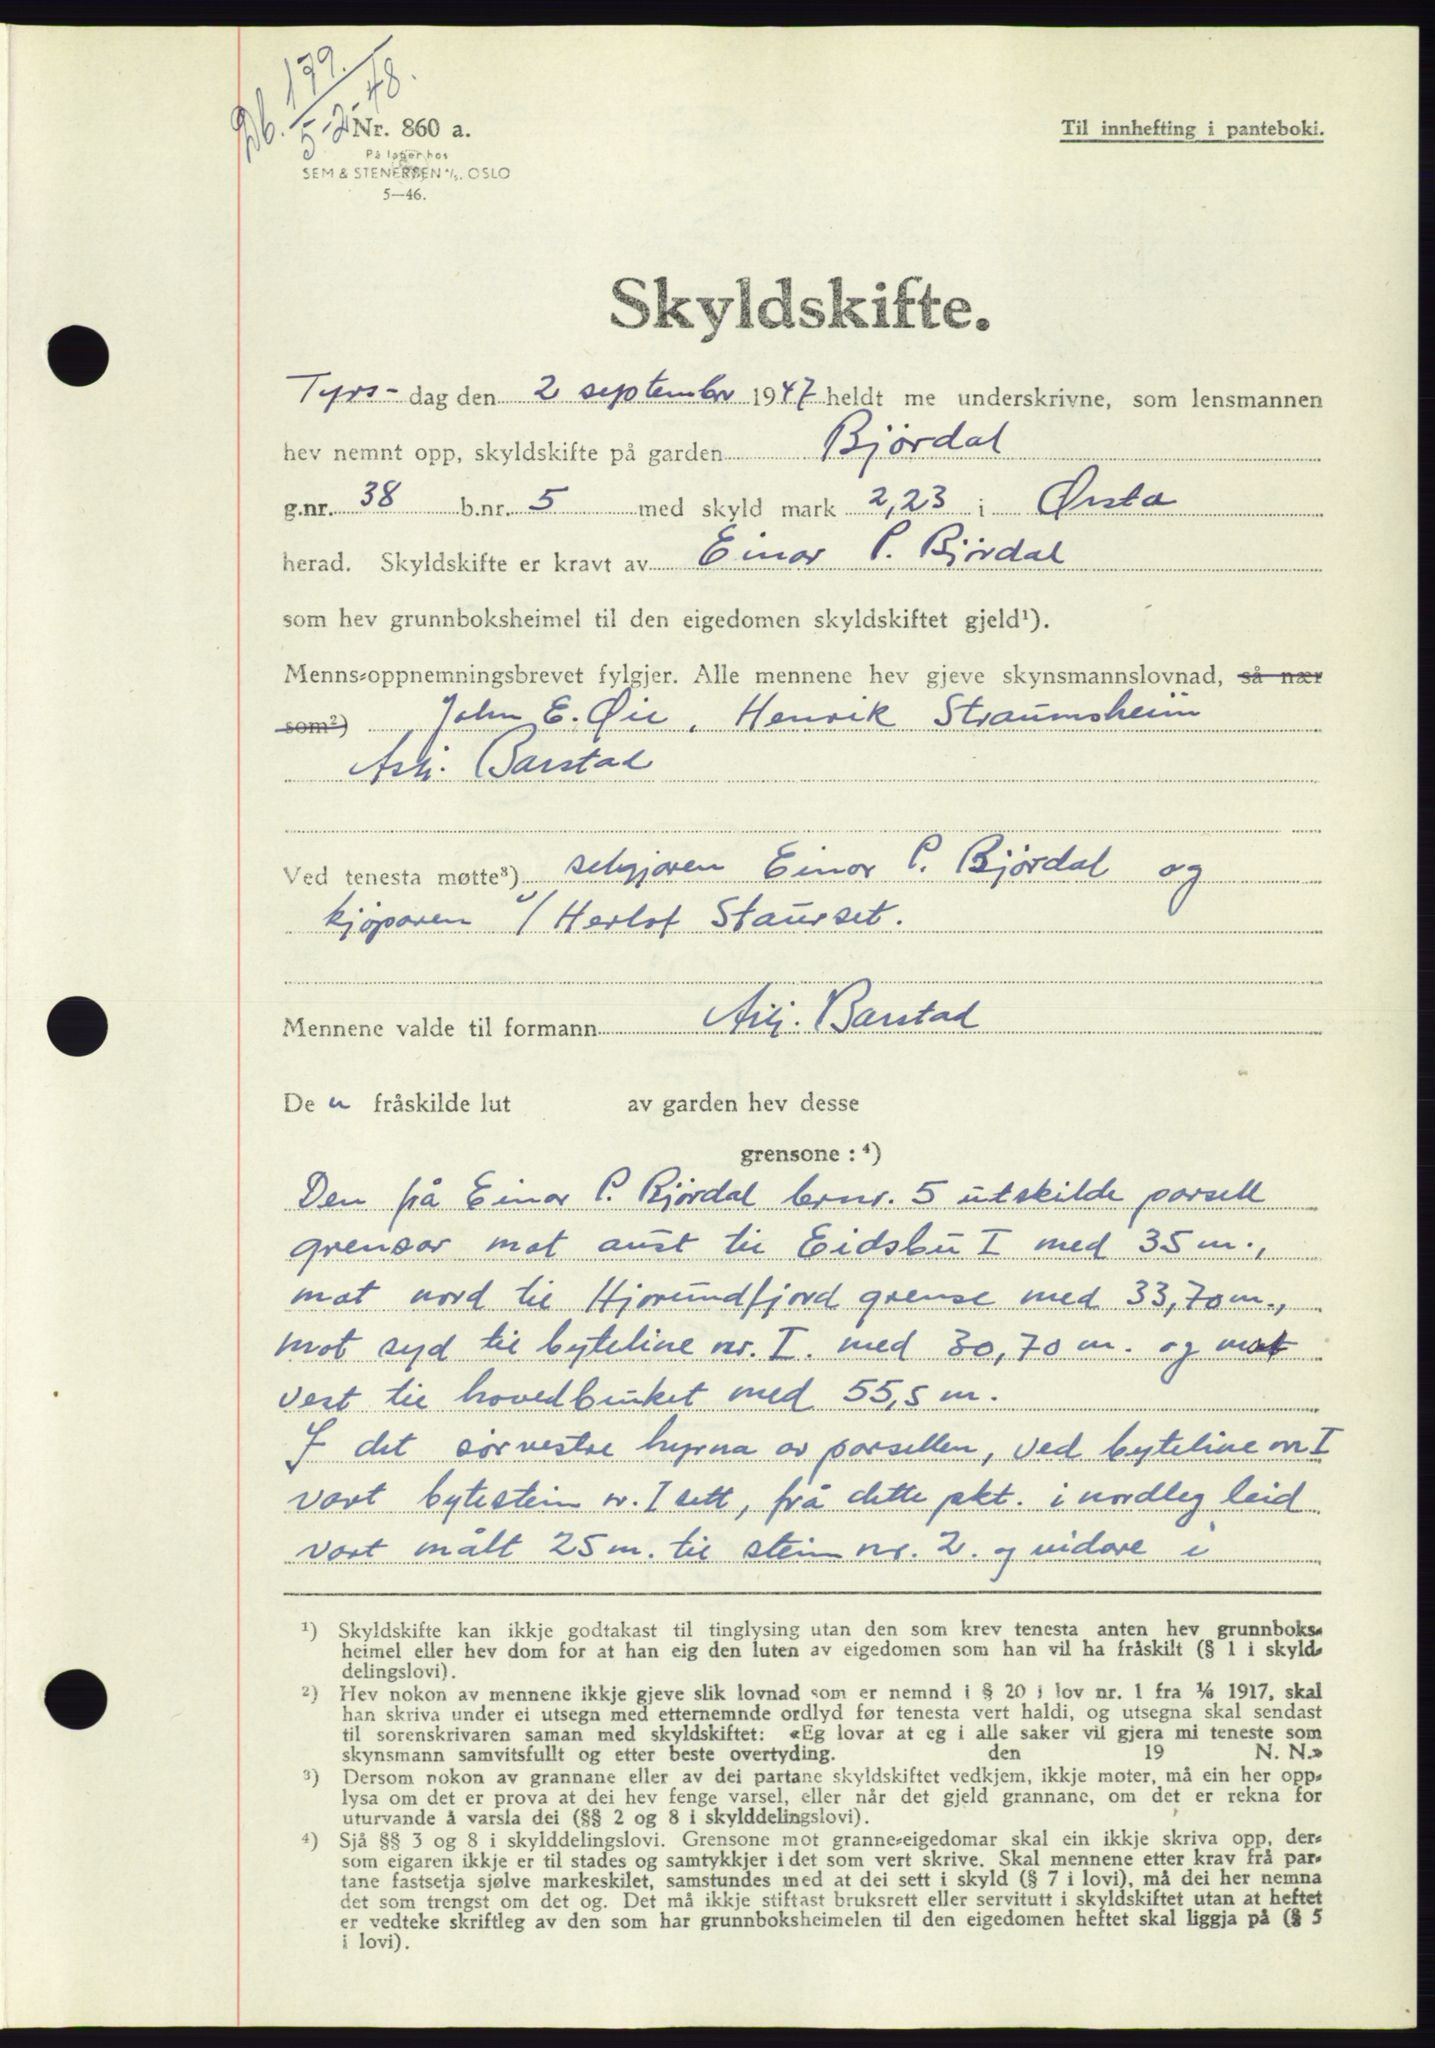 Db. 179.
5-2-48.
Nr. 860 a.
Til innhefting i panteboki.
På lager hos
SEM & STENERSEN A/S. OSLO
5—46.
Skyldskifte.
Tyrs- dag den 2 september 1947 heldt me underskrivne, som lensmannen
hev nemnt opp, skyldskifte på garden Björdal
g.nr. 38 b.nr. 5 med skyld mark 2,23 i Ørsta
herad. Skyldskifte er kravt av Einar P. Björdal
som hev grunnboksheimel til den eigedomen skyldskiftet gjeld¹).
Menns-oppnemningsbrevet fylgjer. Alle mennene hev gjeve skynsmannslovnad, så nær
som²) John E. Øie, Henrik Straumsheim
Barstad
Ved tenesta møtte³) seljaren Einar P. Björdal og
kjöparen v/ Herlof Staurset.
Mennene valde til formann Barstad
De n fråskilde lut av garden hev desse
grensone : ⁴)
Den på Einar P. Björdal brnr. 5 utskilde parsell
grensar mot aust til Eidsbu I med 35 m.,
mot nord til Hjørundfjord grense med 33,70 m.,
mot syd til byteline nr. I. med 30,70 m. og mot
vest til hovedbruket med 55,5 m.
I det sørvestre hyrna av parsellen, ved byteline nr I
vart bytestein nr. I sett, frå dette pkt. i nordleg leid
vart målt 25 m. til stein nr. 2. og vidare i
¹) Skyldskifte kan ikkje godtakast til tinglysing utan den som krev tenesta anten hev grunnboks-
heimel eller hev dom for at han eig den luten av eigedomen som han vil ha fråskilt (§ 1 i skyld-
delingslovi).
²) Hev nokon av mennene ikkje gjeve slik lovnad som er nemnd i § 20 i lov nr. 1 fra ¹/₆ 1917, skal
han skriva under ei utsegn med etternemnde ordlyd før tenesta vert haldi, og utsegna skal sendast
til sorenskrivaren saman med skyldskiftet: «Eg lovar at eg i alle saker vil gjera mi teneste som
skynsmann samvitsfullt og etter beste overtyding. den 19 N. N.»
³) Dersom nokon av grannane eller av dei partane skyldskiftet vedkjem, ikkje møter, må ein her opp-
lysa om det er prova at dei hev fenge varsel, eller når det gjeld grannane, om det er rekna for
uturvande å varsla dei (§§ 2 og 8 i skylddelingslovi).
⁴) Sjå §§ 3 og 8 i skylddelingslovi. Grensone mot granne-eigedomar skal ein ikkje skriva opp, der-
som eigaren ikkje er til stades og samtykkjer i det som vert skrive. Skal mennene etter krav frå par-
tane fastsetja sjølve markeskilet, samstundes med at dei sett i skyld (§ 7 i lovi), må dei her nemna
det som trengst om det og. Det må ikkje stiftast bruksrett eller servitutt i skyldskiftet utan at heftet
er vedteke skriftleg av den som har grunnboksheimelen til den eigedomen heftet skal liggja på (§ 5
i lovi).